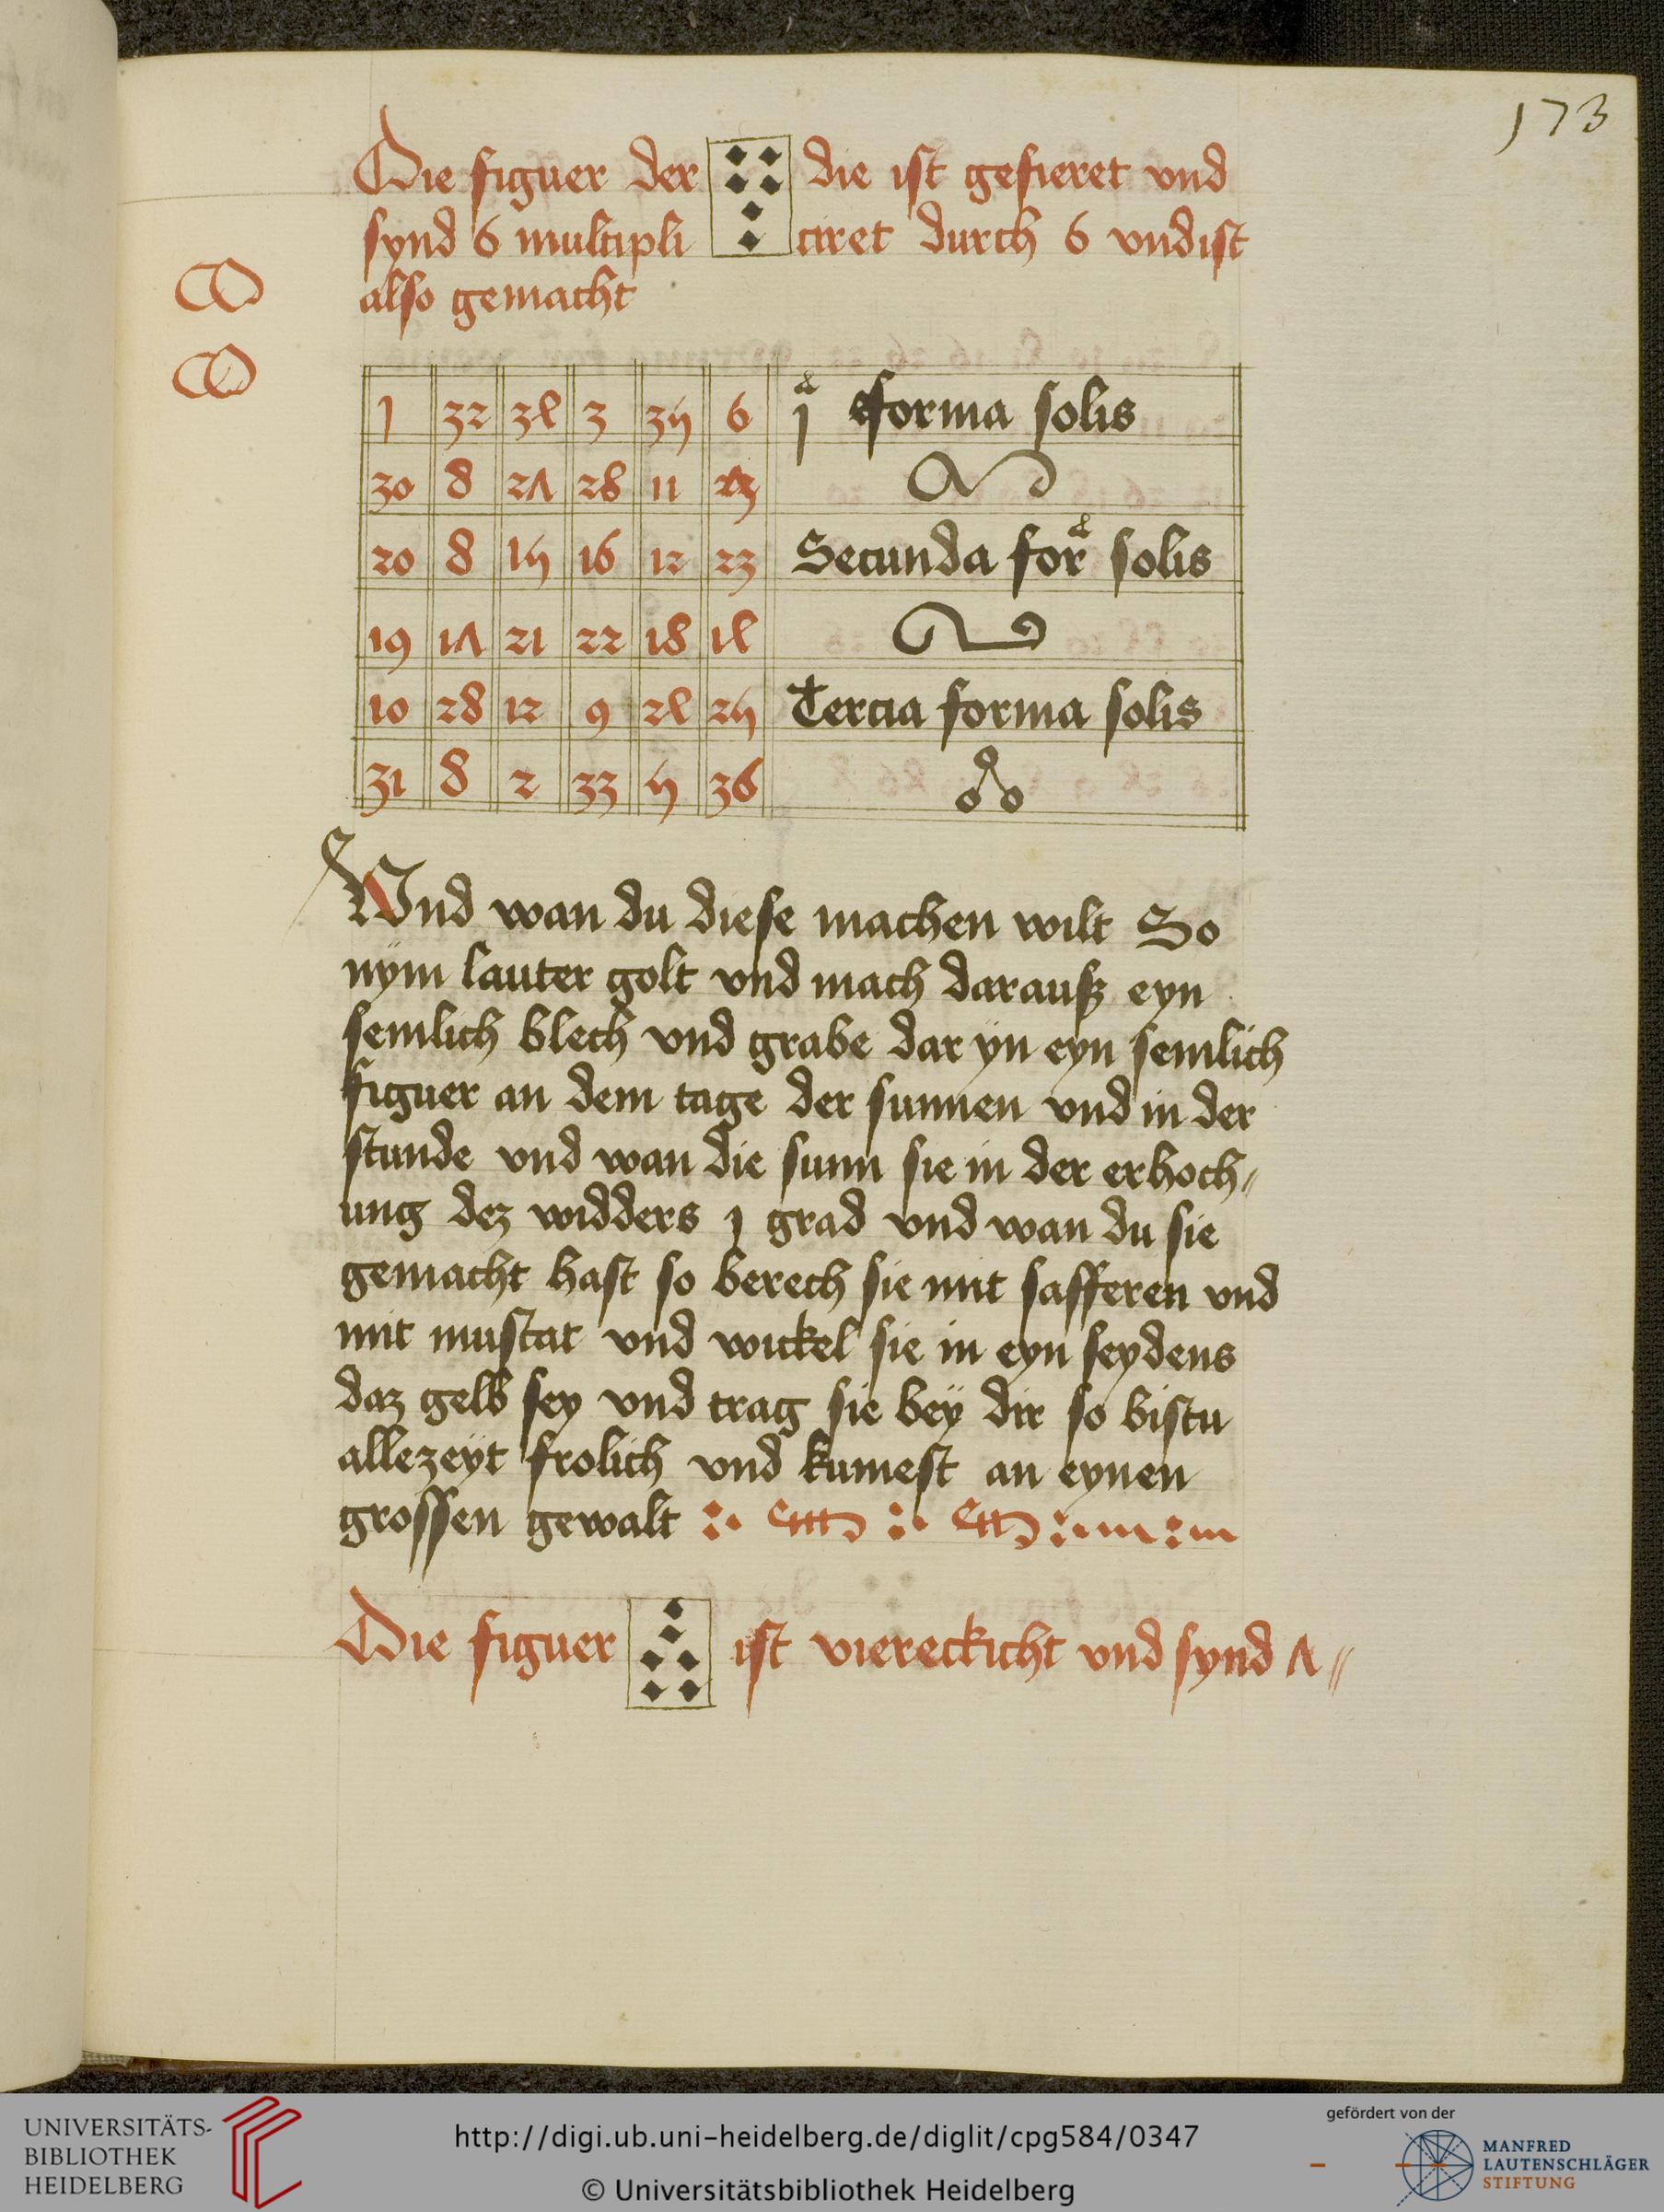 173
Die figuer der die ist gefieret vnd
synd 6 multipli ciret durch 6 vnd ist
also gemacht
1 32 34 3 35 6 jᵃ forma solis
30 8 27 28 11
20 8 15 16 12 23 Secunda forᵃ solis
19 17 21 22 18 14
10 28 12 9 24 25 Tercia forma solis
31 8 2 33 5 36
Vnd wan du diese machen wilt So
nÿm lauter golt vnd mach darauß eyn
semlich blech vnd grabe dar ÿn eyn semlich
figuer an dem tage der sunnen vnd in der
stunde vnd wan die sunn sie in der erhoch⸗
ung dez widders j grad vnd wan du sie
gemacht hast so berech sie mit safferen vnd
mit mustat vnd wickel sie in eyn seydens
daz gelb sey vnd trag sie beÿ dir so bistu
allezeÿt frolich vnd kumest an eynen
grossen gewalt
Die figuer ist viereckicht vnd synd 7⸗
UNIVERSITÄTS-
BIBLIOTHEK
HEIDELBERG
http://digi.ub.uni-heidelberg.de/diglit/cpg584/0347
© Universitätsbibliothek Heidelberg
gefördert von der
MANFRED
LAUTENSCHLÄGER
STIFTUNG